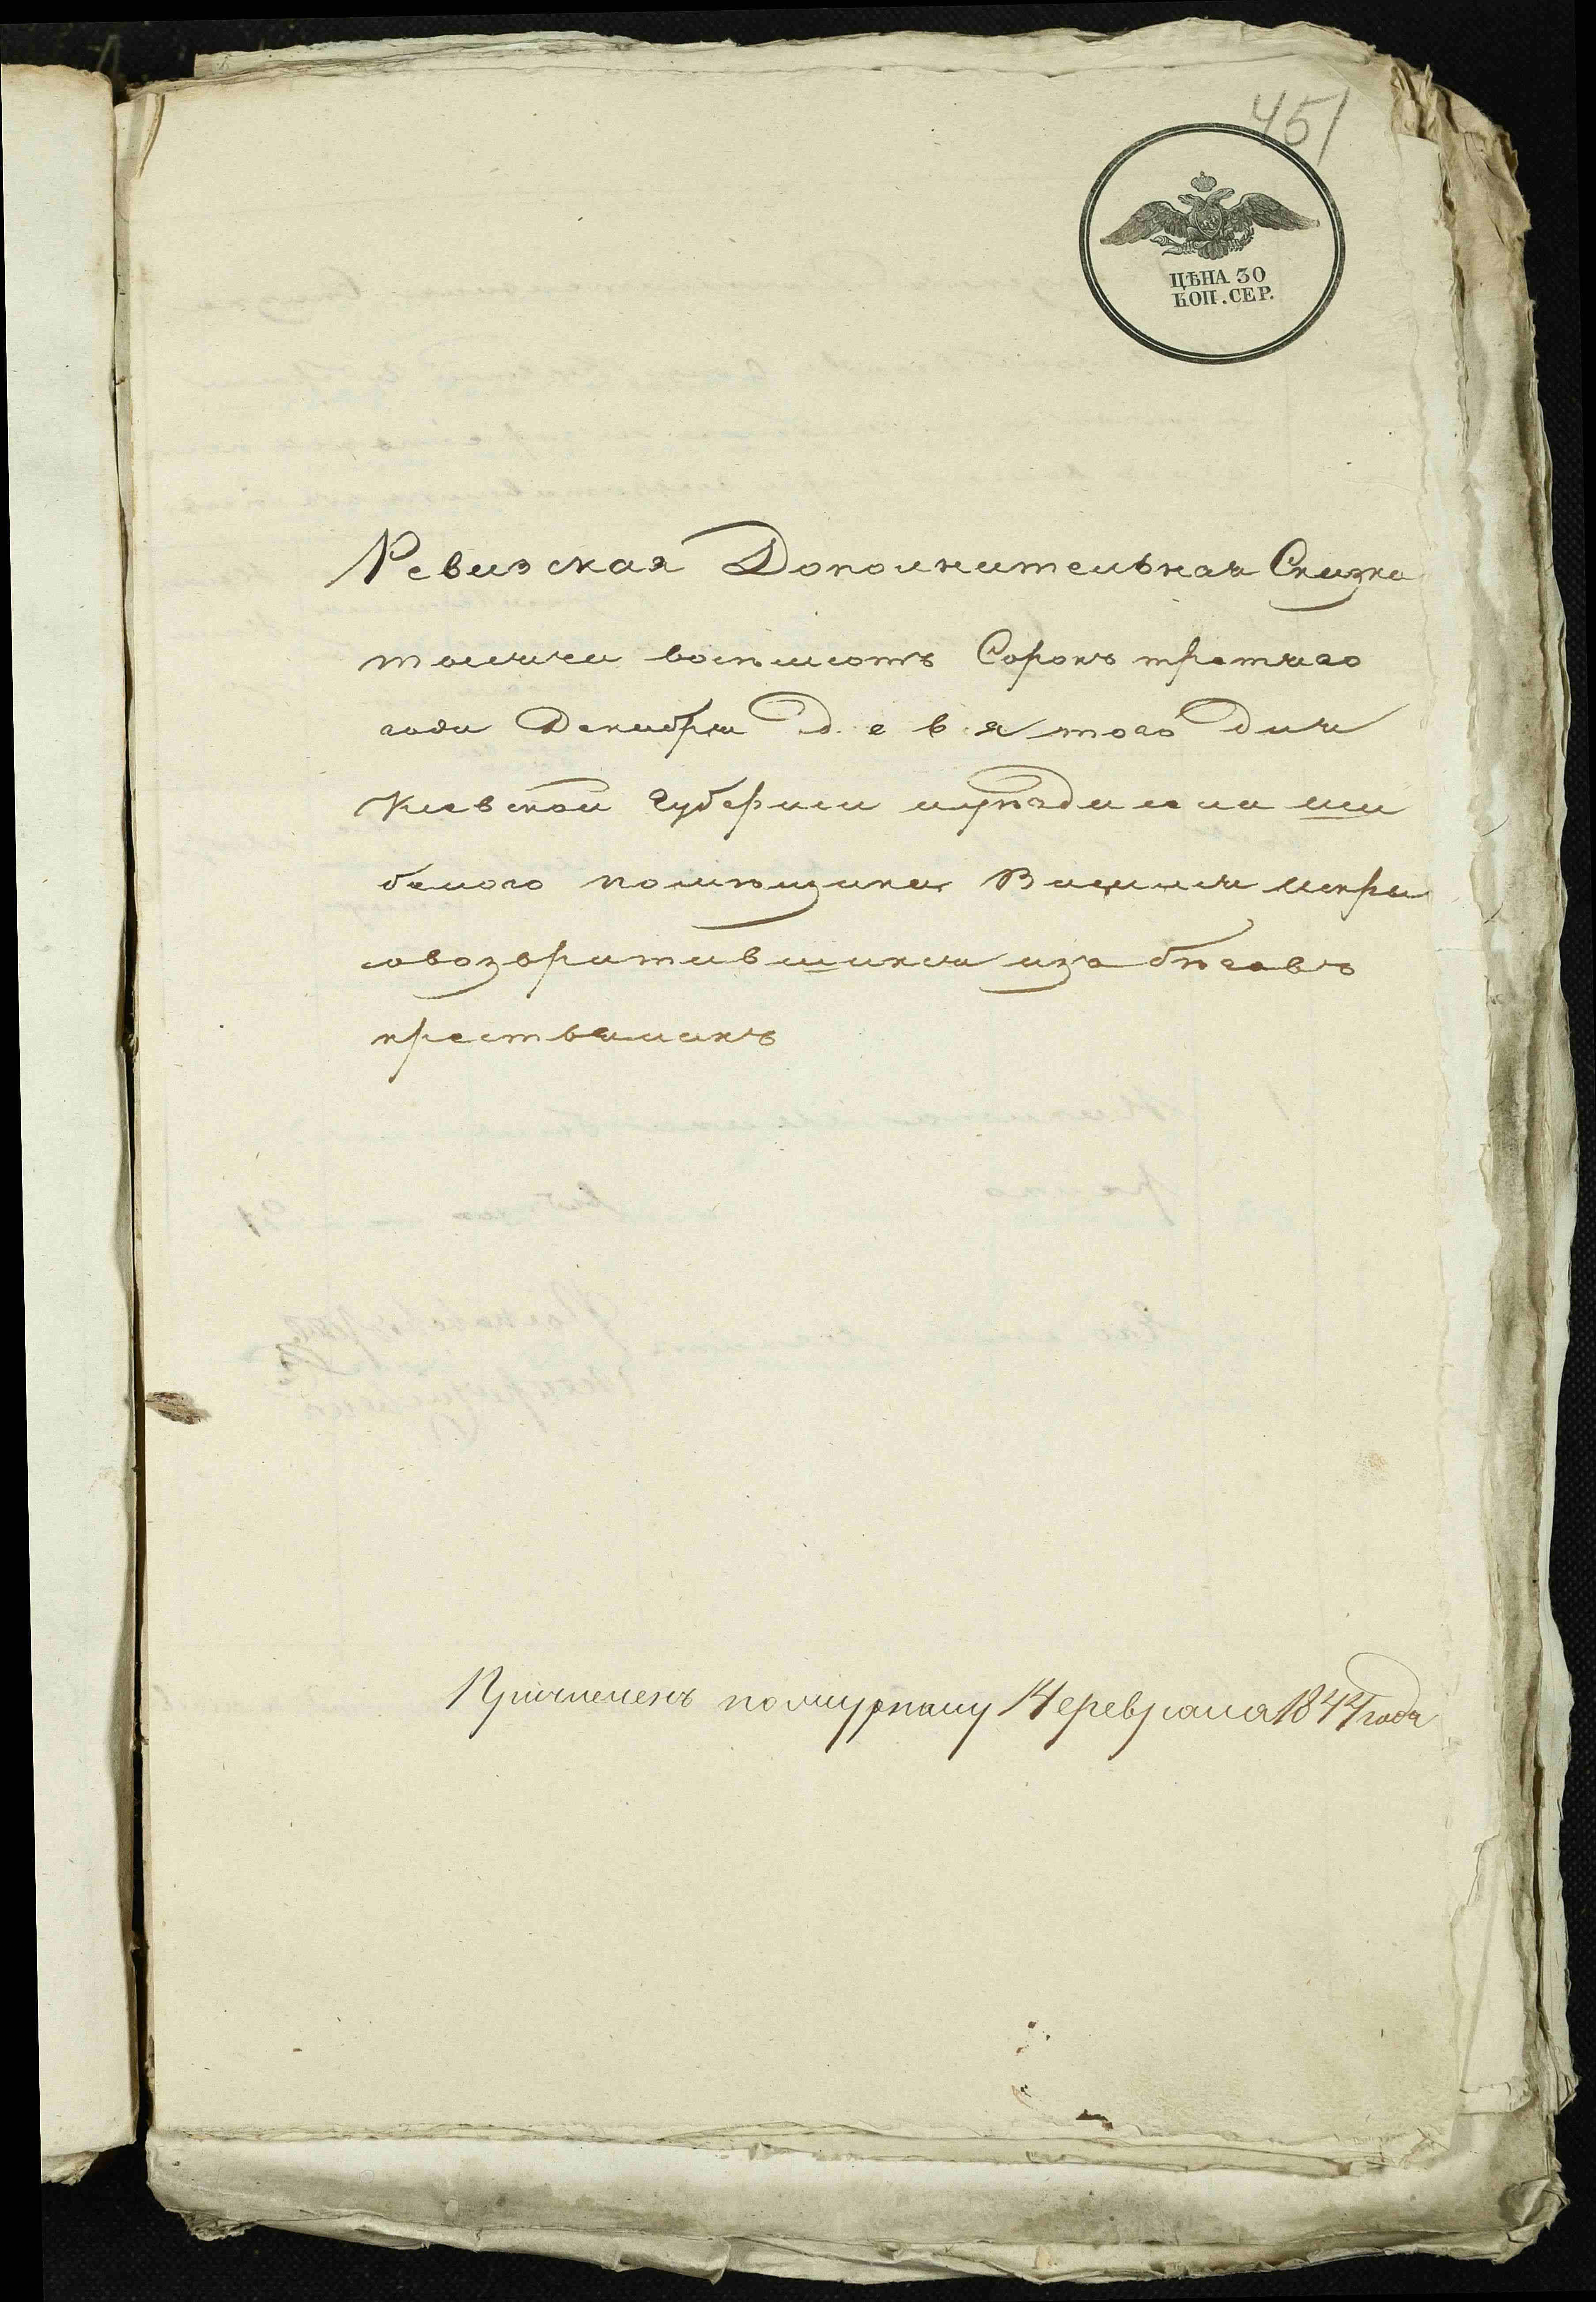 451
ЦѢНА 30
КОП. СЕР.
Ревизская Дополнительная Сказка
тысяча восѣмсотъ Сорокъ третяго
года Декабря девятого дня
Киевской Губернии
помѣщика
овозвратившихся изъ бѣговъ
крестьянахъ
Причисленъ по журналу 14 февраля 1844 года